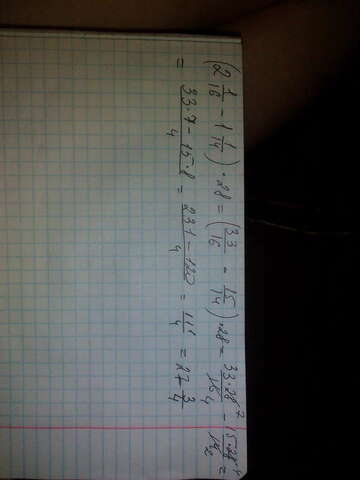 (2 1/16 - 1 1/14) · 28 = (33/16 - 15/14) · 28 = 33·28⁷/16₄ - 15·28⁴/14₂ =
= (33·7 - 15·8)/4 = (231 - 120)/4 = 111/4 = 27 3/4